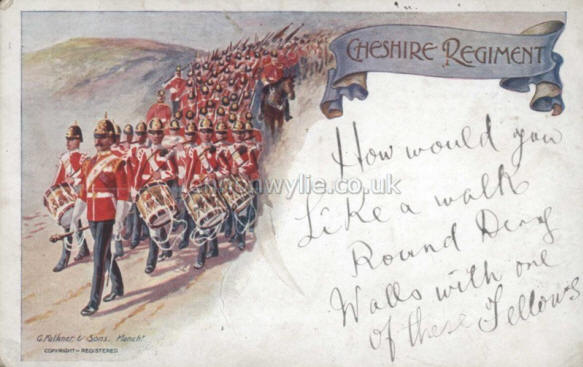 CHESHIRE REGIMENT
How would you
Like a walk
Round Derry
Walls with one
of these Fellows
G. Falkner & Sons. Mancht.
COPYRIGHT — REGISTERED